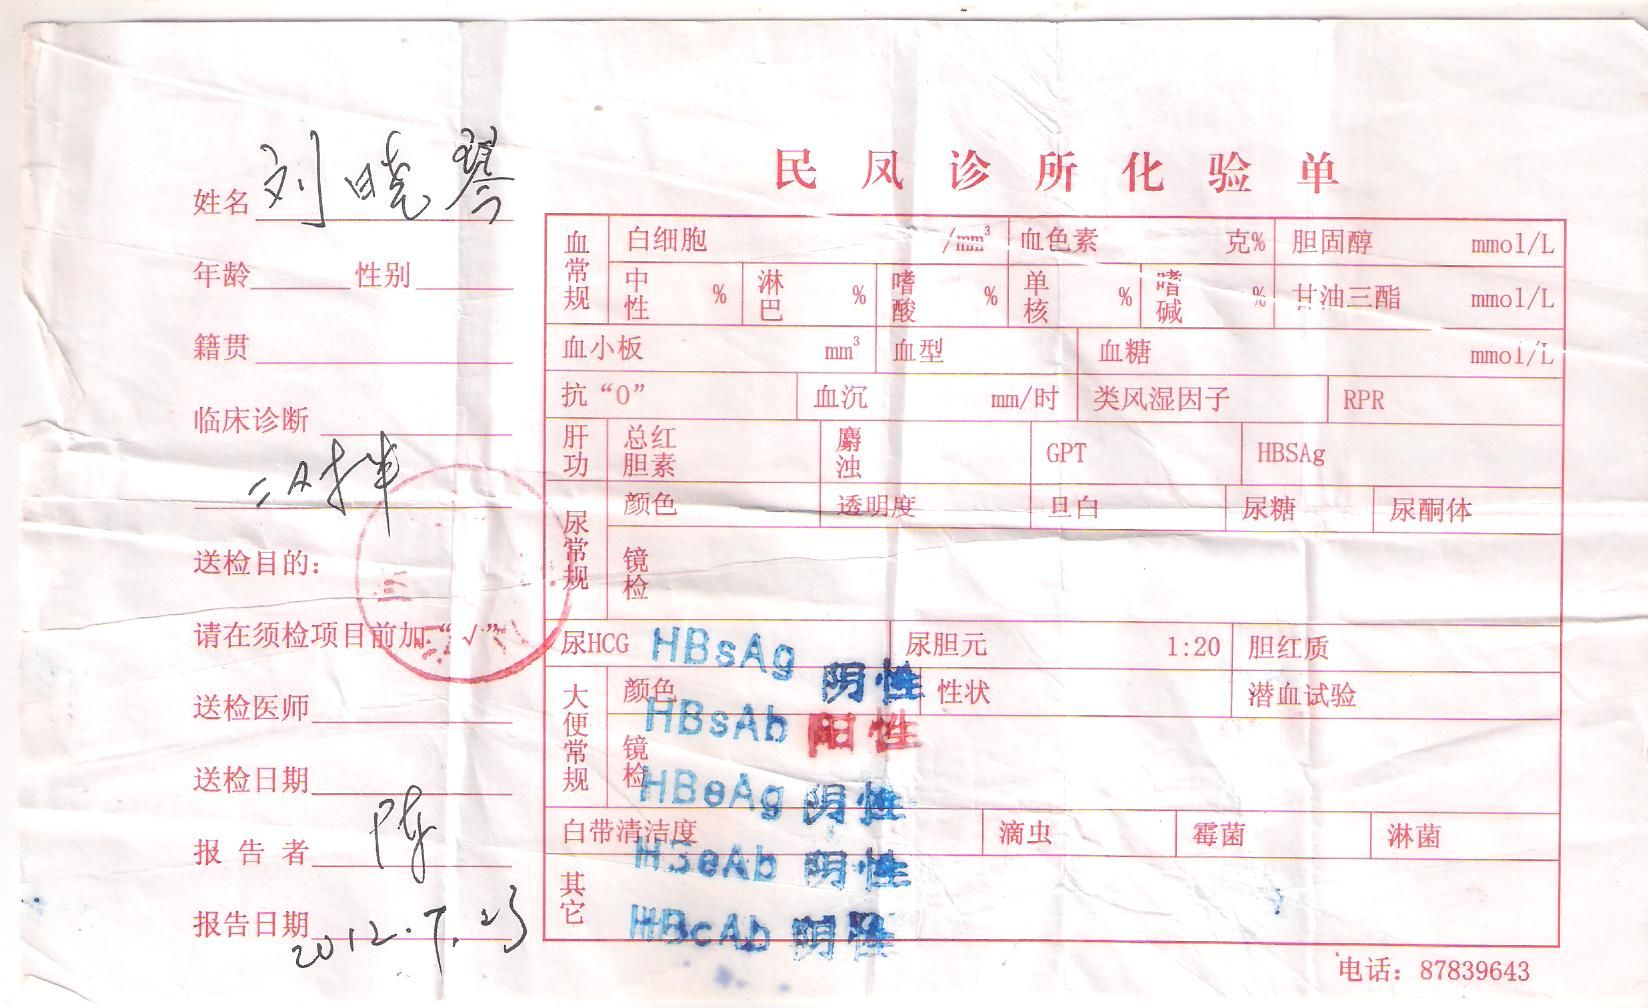 民凤诊所化验单
姓名 刘晓琴
年龄 性别
籍贯
临床诊断
送检目的:
请在须检项目前加“√”
送检医师
送检日期
报告者 陈
报告日期 2012.7.23
血常规 白细胞 /mm³ 血色素 克% 胆固醇 mmol/L
中性 % 淋巴 % 嗜酸 % 单核 % 嗜碱 % 甘油三酯 mmol/L
血小板 mm³ 血型 血糖 mmol/L
抗“O” 血沉 mm/时 类风湿因子 RPR
肝功 总红胆素 麝浊 GPT HBSAg
尿常规 颜色 透明度 旦白 尿糖 尿酮体
镜检
尿HCG 尿胆元 1:20 胆红质
大便常规 颜色 性状 潜血试验
镜检
白带清洁度 滴虫 霉菌 淋菌
其它
HBsAg 阴性
HBsAb 阳性
HBeAg 阴性
HBeAb 阴性
HBcAb 阴性
电话: 87839643